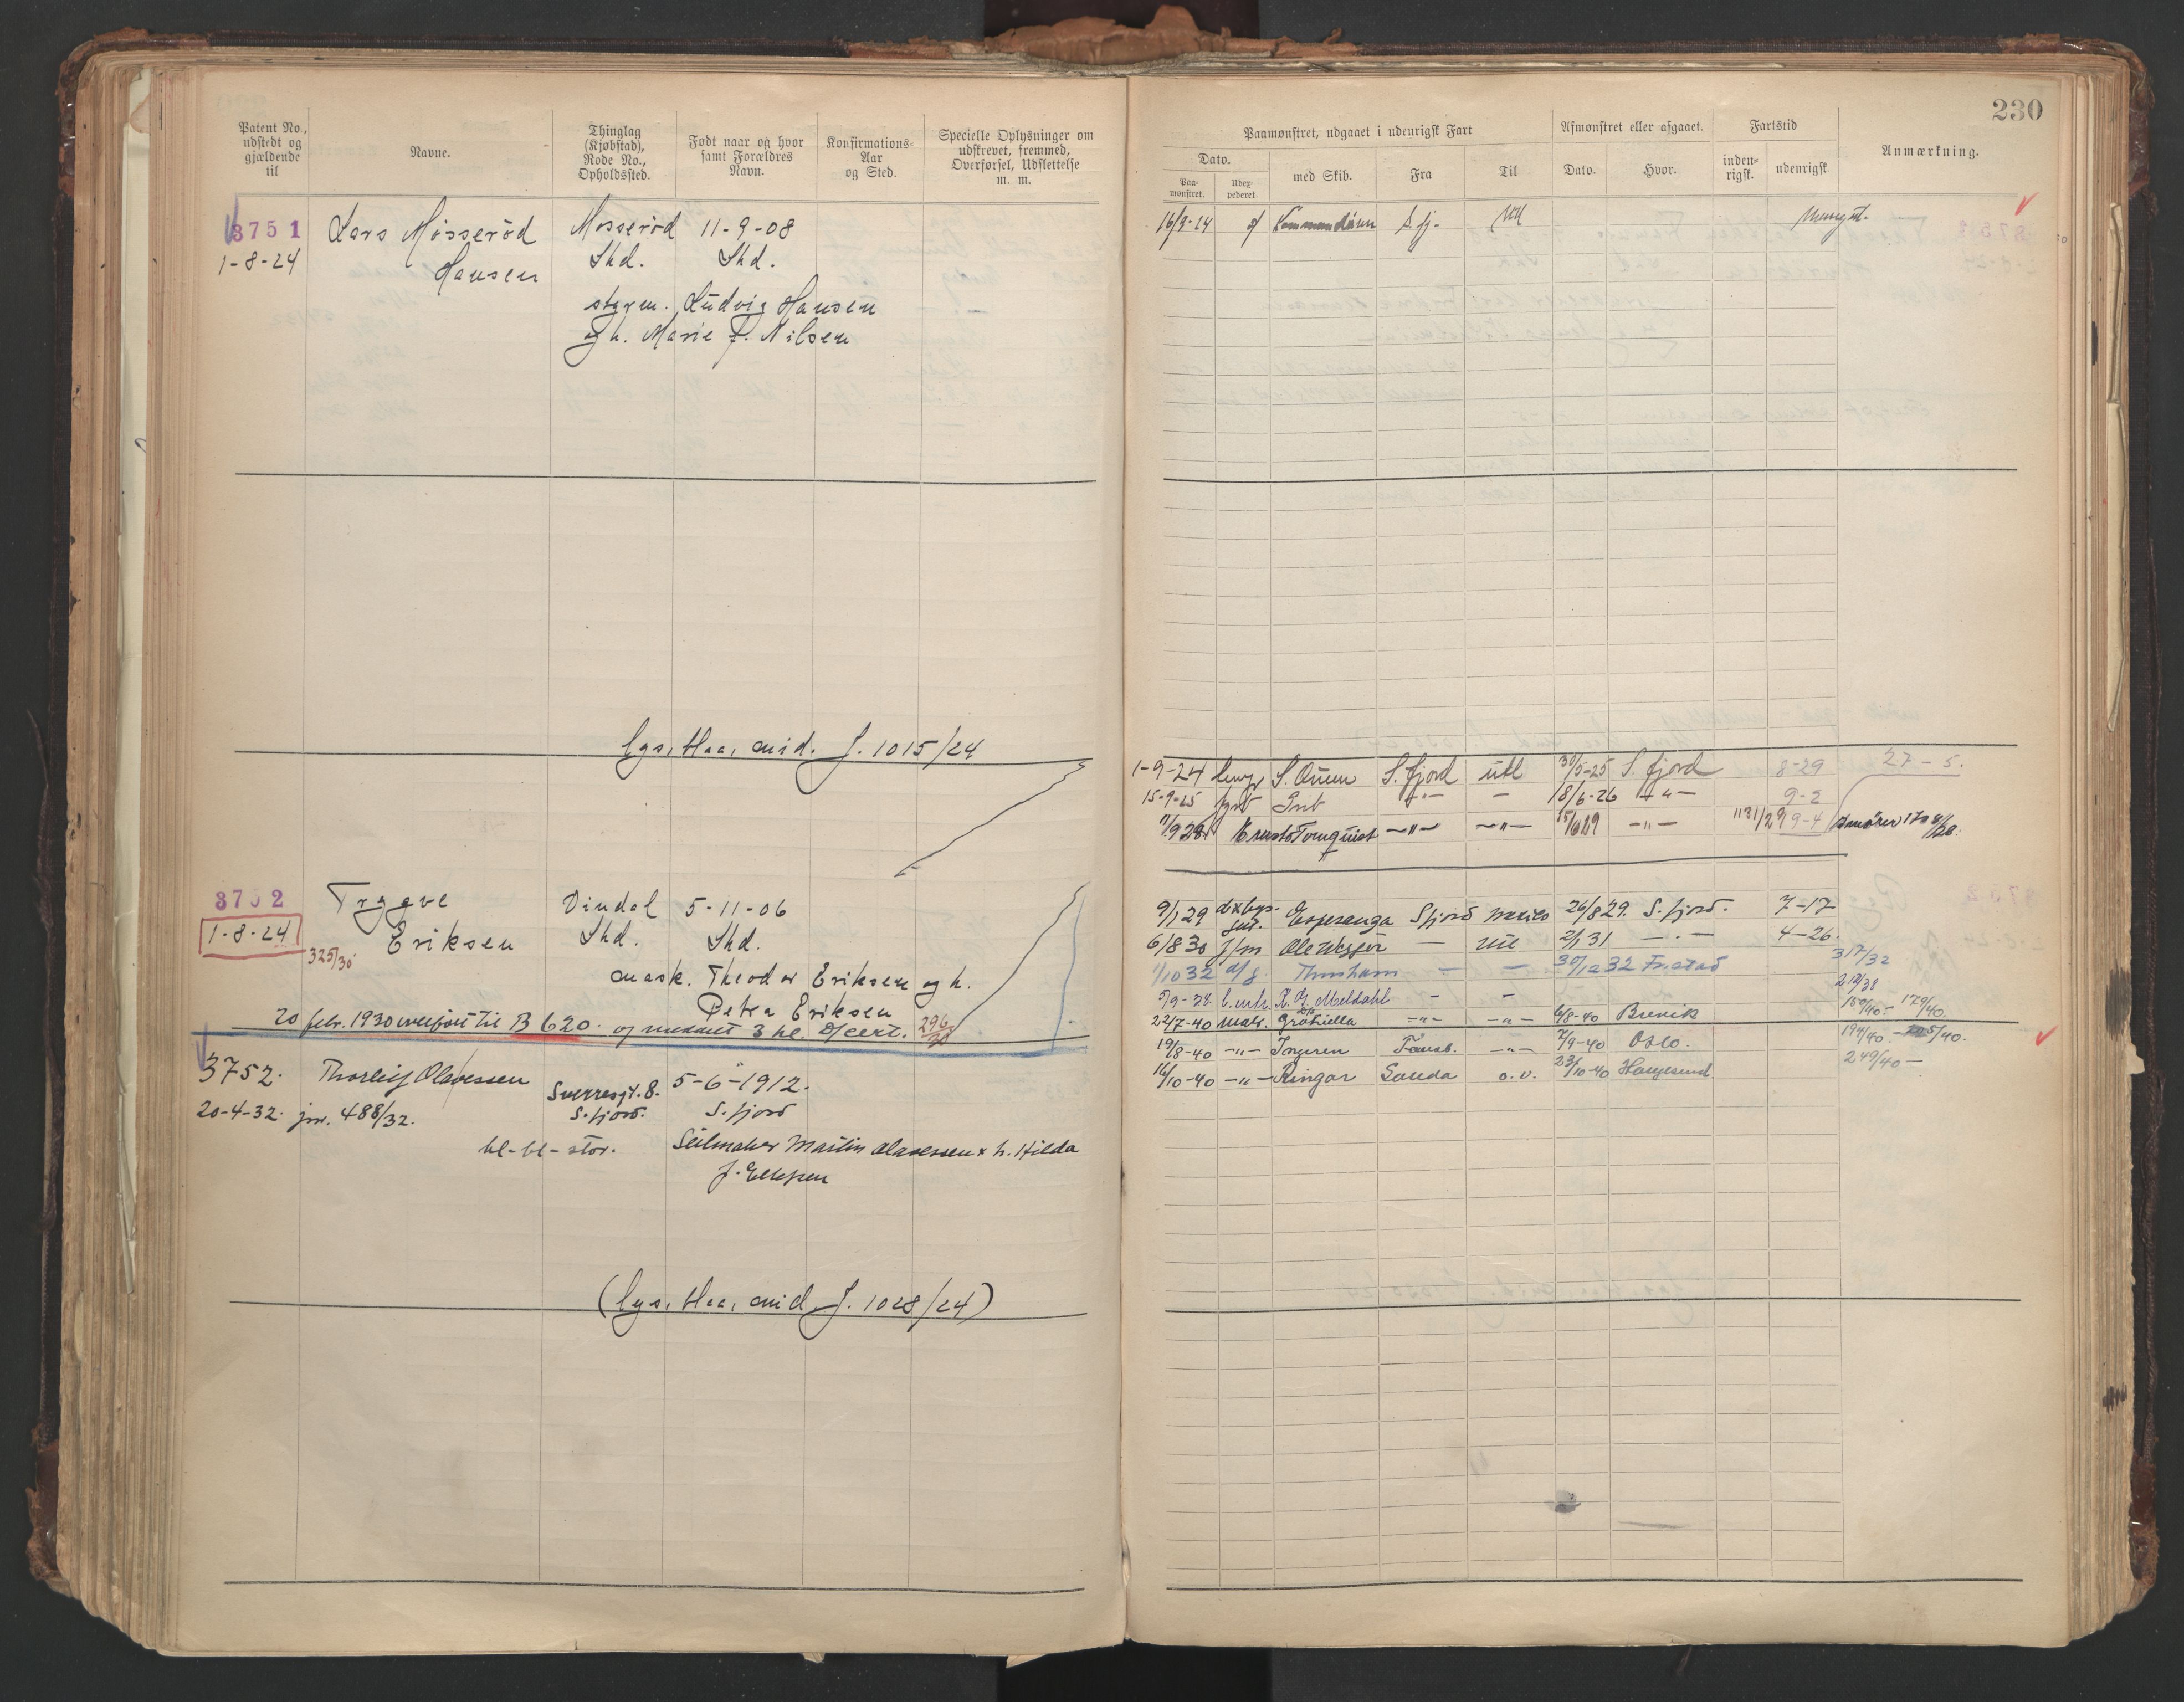 230
Patent No., udstedt og gjældende til
Navne.
Thinglag (Kjøbstad), Rode No., Opholdssted.
Født naar og hvor samt Forældres Navn.
Konfirmations-Aar og Sted.
Specielle Oplysninger om udskrevet, fremmed, Overførsel, Udslettelse m. m.
3751 Lars Mosserød Mosserød 11-9-08
1-8-24 Hansen Shd. Shd.
styrm. Ludvig Hansen
og h. Marie f. Nilsen
lys, Haa, mid. J. 1015/24
3752 Trygve Vindal 5-11-06
1-8-24 Eriksen Shd. Shd.
325/30
mask. Theodor Eriksen og h.
Petra Eriksen
20 febr. 1930 overført til B 620. og meddelt 3 kl. D/cert. 296/30
3752. Thorleif Olavessen Sverresgt. 8. 5-6-1912.
20-4-32. jnr. 488/32. S. fjord. S. fjord
bl-bl-stor. Seilmaker Martin Olavessen & h. Hilda
f. Ellefsen
(lys, Haa, mid J. 1028/24)
Paamønstret, udgaaet i udenrigsk Fart
Afmønstret eller afgaaet.
Fartstid
Anmærkning.
Dato.
Paa-mønstret.
Udex-pederet.
med Skib.
Fra
Til
Dato.
Hvor.
inden-rigsk.
udenrigsk
16/9-24 Kommandøren S. fj. Utl
1-9-24 S. Queen S. fjord utl 30/5-25 S. fjord 8-29 27-5.
15-9-25 -"- - 18/6-26 -"- 9-2
11/9 28 Ernesto Tornquist -"- -"- 15/6 29 -"- 9-4
9/1 29 Esperanza S fjord 26/8 29. S. fjord. 7-17
6/8 30 Ole Wegger - utl 2/1 31 - 4-26.
1/10 32 Thorshavn - - 30/12 32 Fr.stad 317/32
5/9-38. K. G. Meldahl - - 219/38
22/7-40 matr. Gabriella -"- -"- 6/8-40 Brevik 150/40.- 179/40.
19/8-40 -"- Ingeren -"- 7/9-40 Oslo. 197/40.
16/10-40 -"- Ringar Sauda o.v. 23/10-40 Haugesund 249/40-